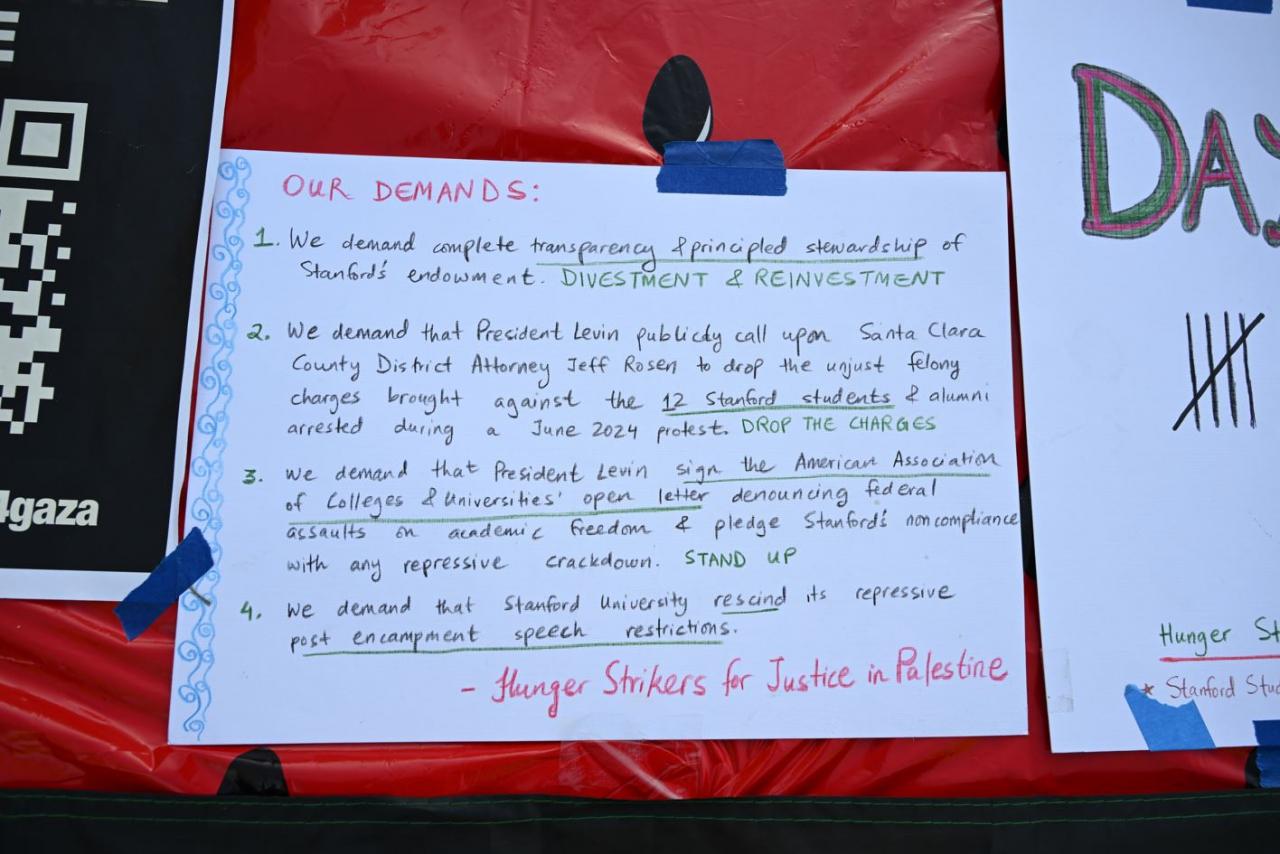 4gaza
OUR DEMANDS:
1. We demand complete transparency & principled stewardship of
Stanford's endowment. DIVESTMENT & REINVESTMENT
2. We demand that President Levin publicly call upon Santa Clara
County District Attorney Jeff Rosen to drop the unjust felony
charges brought against the 12 Stanford students & alumni
arrested during a June 2024 protest. DROP THE CHARGES
3. We demand that President Levin sign the American Association
of Colleges & Universities' open letter denouncing federal
assaults on academic freedom & pledge Stanford's noncompliance
with any repressive crackdown. STAND UP
4. We demand that Stanford University rescind its repressive
post encampment speech restrictions.
- Hunger Strikers for Justice in Palestine
DAY
Hunger St
* Stanford Stud